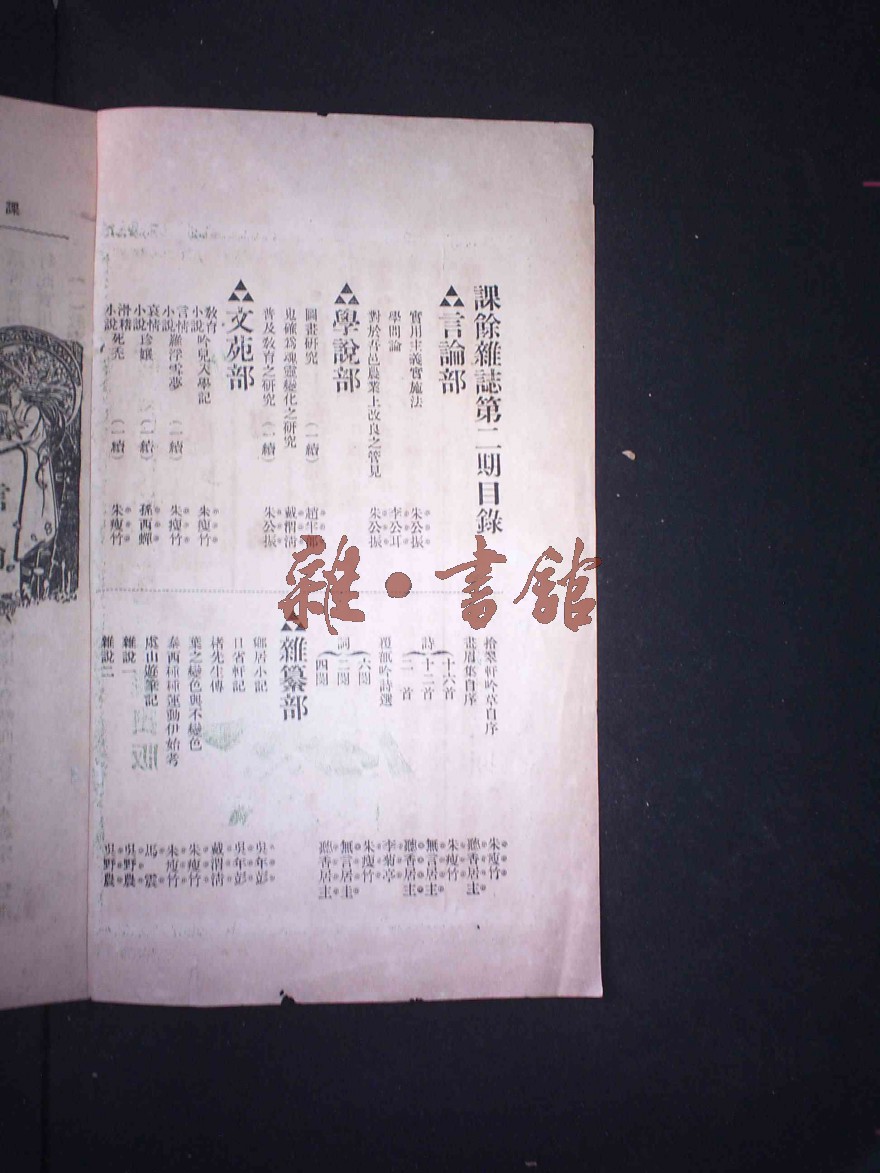 課餘雜誌第二期目錄
言論部
實用主義實施法 朱公振
學問論 李公耳
對於吾邑農業上改良之管見 朱公振
學說部
圖畫研究 (一續)
鬼確爲魂靈變化之研究 戴渭清
普及敎育之研究 (一續) 朱公振
文苑部
敎育小說 吟兒入學記 朱瘦竹
言情小說 羅浮雪夢 (一續) 朱瘦竹
哀情小說 珍孃 (一續) 孫西蟬
滑稽小說 死禿 (一續) 朱瘦竹
拾翠軒吟草自序 朱瘦竹
畫眉集自序 聽香居主
詩
十六首 朱瘦竹
十二首 無言居主
二首 聽香居主
覆瓿吟詩選 李菊亭
詞
六闋 朱瘦竹
二闋 無言居主
四闋 聽香居主
雜纂部
鄉居小記 吳年彭
日省軒記 吳年彭
楮先生傳 戴渭清
葉之變色與不變色 朱瘦竹
泰西種種運動伊始考 朱瘦竹
虞山遊筆記 馬震
雜說一 吳野農
雜說二 吳野農
課
雜·書館